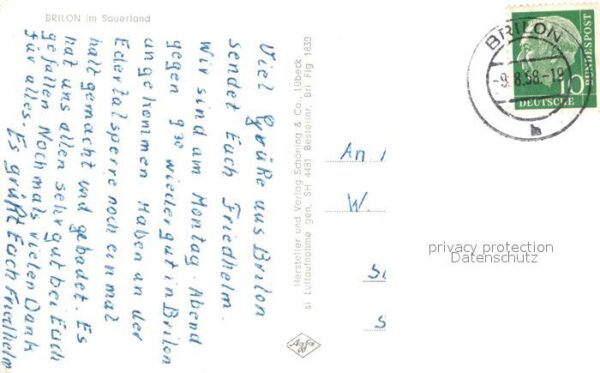 BRILON im Sauerland
Viel Grüße aus Brilon
sendet Euch Friedhelm.
Wir sind am Montag-Abend
gegen 9³⁰ wieder gut in Brilon
angekommen Haben an der
Edertalsperre noch einmal
halt gemacht und gebadet. Es
hat uns allen sehr gut bei Euch
gefallen. Nochmals vielen Dank
für alles. Es grüßt Euch Friedhelm
Hersteller und Verlag Schöning & Co., Lübeck
si Luftaufnahme gen. SH 4481 Bestellnr. Bri Flg 1830
Agfa
BRILON
-9.8.58.-19
b
10
DEUTSCHE
BUNDESPOST
An
W.
S
privacy protection
Datenschutz